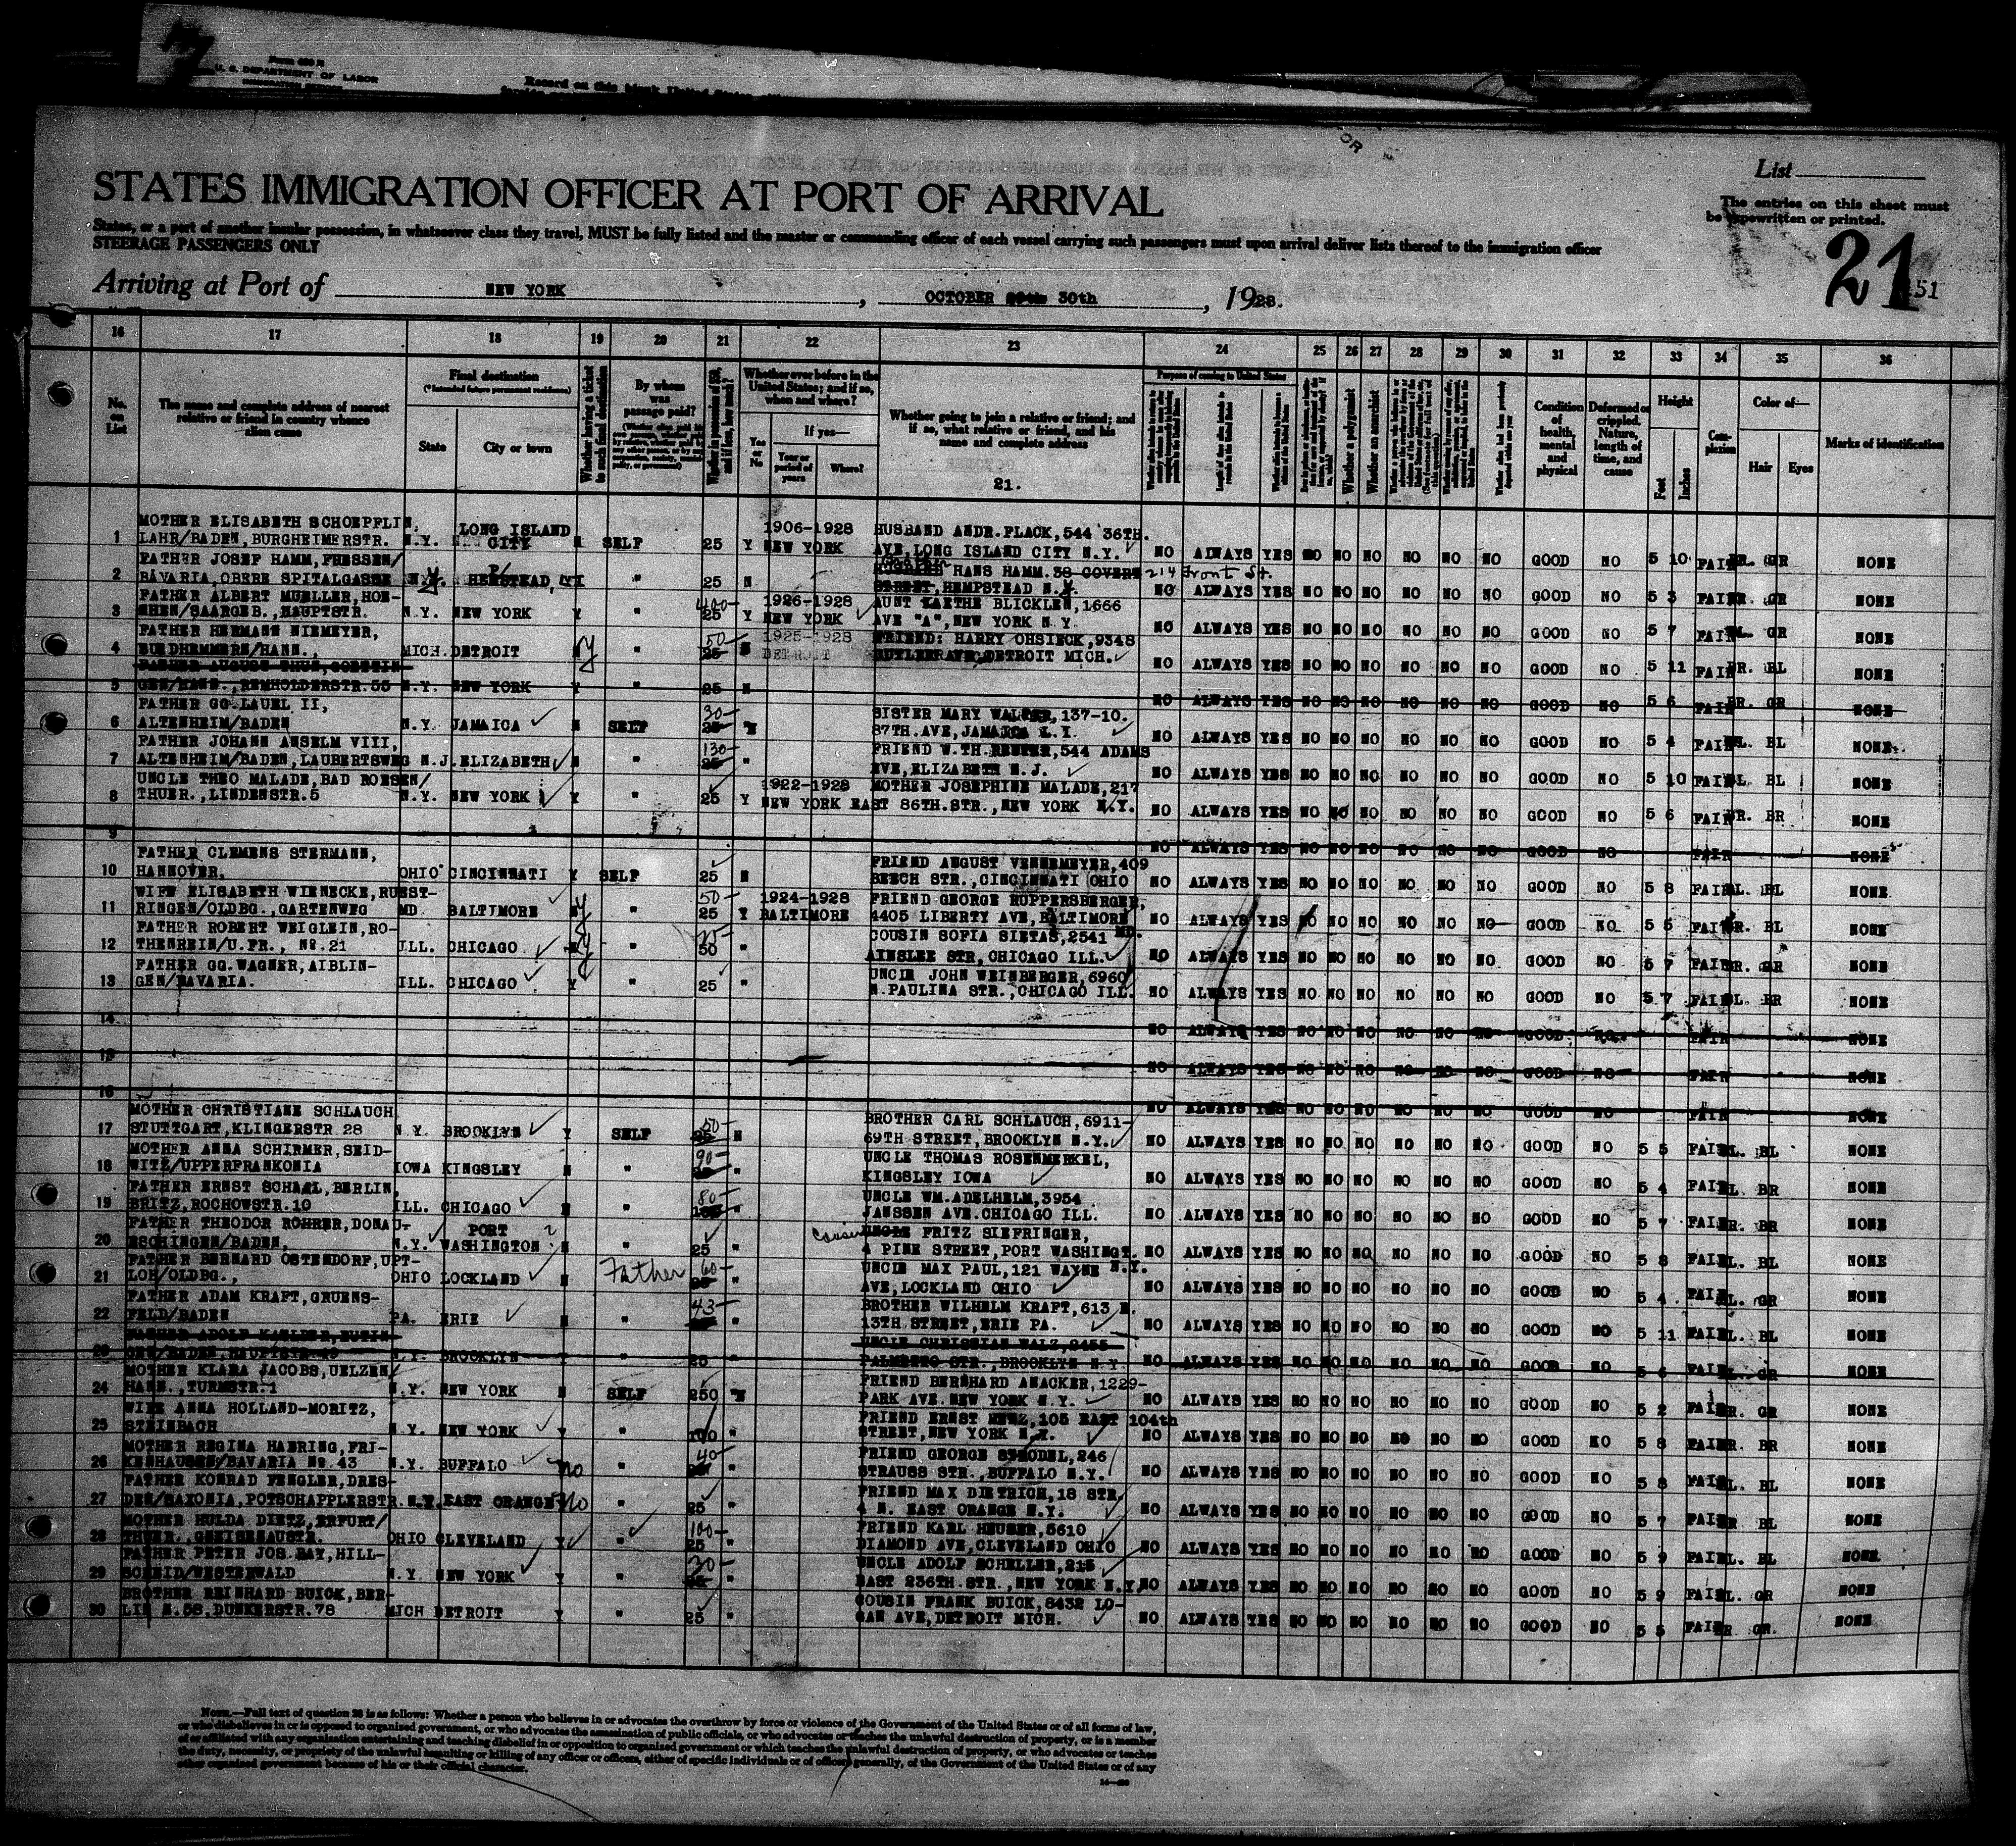 U. S. DEPARTMENT OF LABOR
Record on this blank United States
List
STATES IMMIGRATION OFFICER AT PORT OF ARRIVAL
The entries on this sheet must
be typewritten or printed.
States, or a part of another insular possession, in whatsoever class they travel, MUST be fully listed and the master or commanding officer of each vessel carrying such passengers must upon arrival deliver lists thereof to the immigration officer
STEERAGE PASSENGERS ONLY
21
51
Arriving at Port of NEW YORK , OCTOBER 30th , 1928.
16 17 18 19 20 21 22 23 24 25 26 27 28 29 30 31 32 33 34 35 36
No. on List
The name and complete address of nearest relative or friend in country whence alien came
Final destination
(*Intended future permanent residence)
State City or town
Whether having a ticket to such final destination
By whom was passage paid?
Whether ever before in the United States; and if so, when and where?
Yes or No
If yes—
Year or period of years
Where?
Whether going to join a relative or friend; and if so, what relative or friend, and his name and complete address
21.
Purpose of coming to United States
Whether a polygamist
Whether an anarchist
Condition of health, mental and physical
Deformed or crippled. Nature, length of time, and cause
Height
Feet Inches
Complexion
Color of—
Hair Eyes
Marks of identification
MOTHER ELISABETH SCHOEPFLIN, LONG ISLAND 1906-1928 HUSBAND ANDR. FLACK, 544 36TH.
1 LAHR/BADEN, BURGHEIMERSTR. N.Y. CITY N SELF 25 Y NEW YORK AVE, LONG ISLAND CITY N.Y. NO ALWAYS YES NO NO NO NO NO NO GOOD NO 5 10 FAIR BR. GR NONE
FATHER JOSEF HAMM, FUESSEN/ HANS HAMM. 38 COVERT 214 Front St.
2 BAVARIA, OBERE SPITALGASSE N.Y. HEMPSTEAD, 25 N STREET, HEMPSTEAD N.Y. NO ALWAYS YES NO NO NO NO NO NO GOOD NO 5 3 FAIR GR NONE
FATHER ALBERT MUELLER, HOE- 400 1926-1928 AUNT KAETHE BLICKLEN, 1666
3 CHEN/SAARGEB., HAUPTSTR. N.Y. NEW YORK Y " 25 Y NEW YORK AVE "A", NEW YORK N.Y. NO ALWAYS YES NO NO NO NO NO NO GOOD NO 5 7 FAIR GR NONE
FATHER HERMANN NIEMEYER, 50 1925-1928 FRIEND: HARRY OHSIECK, 9348
4 MICH. DETROIT y " 25 DETROIT BUTLER AVE, DETROIT MICH. NO ALWAYS YES NO NO NO NO NO NO GOOD NO 5 11 FAIR BR. BL NONE
5 N.Y. NEW YORK Y " 25 N NO ALWAYS YES NO NO NO NO NO NO GOOD NO 5 6 FAIR BR. GR NONE
FATHER GG. LAUEL II, 30 SISTER MARY WALTER, 137-10.
6 ALTENHEIM/BADEN N.Y. JAMAICA N SELF 25 87TH. AVE, JAMAICA L.Y. NO ALWAYS YES NO NO NO NO NO NO GOOD NO 5 4 FAIR BL. BL NONE.
FATHER JOHANN ANSELM VIII, 130 FRIEND W. TH. REUTER, 544 ADAMS
7 ALTENHEIM/BADEN, LAUBERTSWEG N.J. ELIZABETH N " 25 " AVE, ELIZABETH N.J. NO ALWAYS YES NO NO NO NO NO NO GOOD NO 5 10 FAIR BL. BL NONE
UNCLE THEO MALADE, BAD KOESEN/ 1922-1928 MOTHER JOSEPHINE MALADE, 217
8 THUER., LINDENSTR. 5 N.Y. NEW YORK Y " 25 Y NEW YORK EAST 86TH. STR., NEW YORK N.Y. NO ALWAYS YES NO NO NO NO NO NO GOOD NO 5 6 FAIR BR. BR NONE
9 NO ALWAYS YES NO NO NO NO NO NO GOOD NO FAIR NONE
FATHER CLEMENS STERMANN, FRIEND AUGUST VENNEMEYER, 409
10 HANNOVER. OHIO CINCINNATI Y SELF 25 N BEECH STR., CINCINNATI OHIO NO ALWAYS YES NO NO NO NO NO NO GOOD NO 5 8 FAIR BL. BL NONE
WIFE ELISABETH WIENECKE, RUEST- 50 1924-1928 FRIEND GEORGE RUPPERSBERGER,
11 RINGEN/OLDBG., GARTENWEG MD. BALTIMORE y " 25 Y BALTIMORE 4405 LIBERTY AVE, BALTIMORE MD. NO ALWAYS YES NO NO NO NO NO NO GOOD NO 5 5 FAIR BR. BL NONE
FATHER ROBERT WEIGLEIN, RO- COUSIN SOFIA SIETAS, 2541
12 THENREIN/U.FR., No. 21 ILL. CHICAGO y " 50 " AINSLEE STR, CHICAGO ILL. NO ALWAYS YES NO NO NO NO NO NO GOOD NO 5 7 FAIR BR. GR NONE
FATHER GG. WAGNER, AIBLIN- UNCLE JOHN WEINBERGER, 6960
13 GEN/BAVARIA. ILL. CHICAGO Y " 25 " N. PAULINA STR., CHICAGO ILL. NO ALWAYS YES NO NO NO NO NO NO GOOD NO 5 7 FAIR BL. BR NONE
14 NO ALWAYS YES NO NO NO NO NO NO GOOD NO FAIR NONE
15 NO ALWAYS YES NO NO NO NO NO NO GOOD NO FAIR NONE
16 NO ALWAYS YES NO NO NO NO NO NO GOOD NO FAIR NONE
MOTHER CHRISTIANE SCHLAUCH 50 BROTHER CARL SCHLAUCH, 6911-
17 STUTTGART, KLINGERSTR 28 N.Y. BROOKLYN Y SELF 25 N 69TH STREET, BROOKLYN N.Y. NO ALWAYS YES NO NO NO NO NO NO GOOD NO 5 5 FAIR BL. BL NONE
MOTHER ANNA SCHIRMER, SEID- 90 UNCLE THOMAS ROSENMERKEL,
18 WITZ/UPPERFRANKONIA IOWA KINGSLEY N " " KINGSLEY IOWA NO ALWAYS YES NO NO NO NO NO NO GOOD NO 5 4 FAIR BL. BR NONE
FATHER ERNST SCHAAL, BERLIN, 80 UNCLE WM. ADELHELM, 3954
19 BRITZ, ROCHOWSTR. 10 ILL. CHICAGO N " " JANSSEN AVE. CHICAGO ILL. NO ALWAYS YES NO NO NO NO NO NO GOOD NO 5 7 FAIR BR. BR NONE
FATHER THEODOR ROHRER, DONAU- PORT ? cousin UNCLE FRITZ SIEFRINGER,
20 ESCHINGEN/BADEN, N.Y. WASHINGTON N " 25 " 4 PINE STREET, PORT WASHINGT. N.Y. NO ALWAYS YES NO NO NO NO NO NO GOOD NO 5 8 FAIR BL. BL NONE
FATHER BERNARD OSTENDORF, UPT- 60 UNCLE MAX PAUL, 121 WAYNE
21 LOH/OLDBG., OHIO LOCKLAND N Father " AVE, LOCKLAND OHIO NO ALWAYS YES NO NO NO NO NO NO GOOD NO 5 4 FAIR BL. GR NONE
FATHER ADAM KRAFT, GRUENS- 43 BROTHER WILHELM KRAFT, 613 E.
22 FELD/BADEN PA. ERIE N " " 13TH STREET, ERIE PA. NO ALWAYS YES NO NO NO NO NO NO GOOD NO 5 11 FAIR BL. BL NONE
UNCLE CHRISTIAN WALZ, 2455
N.Y. BROOKLYN Y " 25 " PALMETTO STR., BROOKLYN N.Y. NO ALWAYS YES NO NO NO NO NO NO GOOD NO 5 6 FAIR BL. GR NONE
MOTHER KLARA JACOBS, UELZEN/ FRIEND BERNHARD ANACKER, 1229-
24 HANN., TURMSTR. 1 N.Y. NEW YORK N SELF 250 PARK AVE. NEW YORK N.Y. NO ALWAYS YES NO NO NO NO NO NO GOOD NO 5 2 FAIR BR. GR NONE
WIFE ANNA HOLLAND-MORITZ, FRIEND ERNST METZ, 105 EAST 104th
25 STEINBACH N.Y. NEW YORK Y " 100 " STREET, NEW YORK N.Y. NO ALWAYS YES NO NO NO NO NO NO GOOD NO 5 8 FAIR BR. BR NONE
MOTHER REGINA HAERING, FRI- 40 FRIEND GEORGE STRODEL, 246
26 KENHAUSEN/BAVARIA No. 43 N.Y. BUFFALO no " " STRAUSS STR., BUFFALO N.Y. NO ALWAYS YES NO NO NO NO NO NO GOOD NO 5 8 FAIR BL. BL NONE
FATHER KONRAD FENGLER, DRES- FRIEND MAX DIETRICH, 18 STR.
27 DEN/SAXONIA, POTSCHAPPLERSTR. N.Y. EAST ORANGE no " 25 " 4 N. EAST ORANGE N.Y. NO ALWAYS YES NO NO NO NO NO NO GOOD NO 5 7 FAIR BL NONE
MOTHER HULDA DIETZ, ERFURT/ 100 FRIEND KARL HEUSER, 5610
28 THUER., GNEISENAUSTR. OHIO CLEVELAND Y " 25 " DIAMOND AVE, CLEVELAND OHIO NO ALWAYS YES NO NO NO NO NO NO GOOD NO 5 9 FAIR BL. BL NONE.
FATHER PETER JOS. BAY, HILL- 30 UNCLE ADOLF SCHELLER, 215
29 SCHEID/WESTERWALD N.Y. NEW YORK Y " " EAST 236TH. STR., NEW YORK N.Y. NO ALWAYS YES NO NO NO NO NO NO GOOD NO 5 9 FAIR BL. GR NONE
BROTHER REINHARD BUICK, BER- COUSIN FRANK BUICK, 8432 LO-
30 LIN N. 58, DUNKERSTR. 78 MICH DETROIT Y " 25 " GAN AVE, DETROIT MICH. NO ALWAYS YES NO NO NO NO NO NO GOOD NO 5 5 FAIR GR. NONE
NOTE.—Full text of question 28 is as follows: Whether a person who believes in or advocates the overthrow by force or violence of the Government of the United States or of all forms of law,
or who disbelieves in or is opposed to organized government, or who advocates the assassination of public officials, or who advocates or teaches the unlawful destruction of property, or is a member
of or affiliated with any organization entertaining and teaching disbelief in or opposition to organized government or which teaches the unlawful destruction of property, or who advocates or teaches
the duty, necessity, or propriety of the unlawful assaulting or killing of any officer or officers, either of specific individuals or of officers generally, of the Government of the United States or of any
other organized government because of his or their official character.